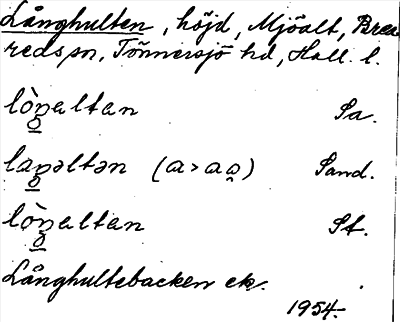 Långhulten, höjd, Mjöalt, Brea-
reds sn, Tönnersjö hd, Hall. l.
lòŋaltan Sa.
laŋəltən (a > aə̯) Sand.
lòŋaltan St.
Långhultebacken ek.
1954.